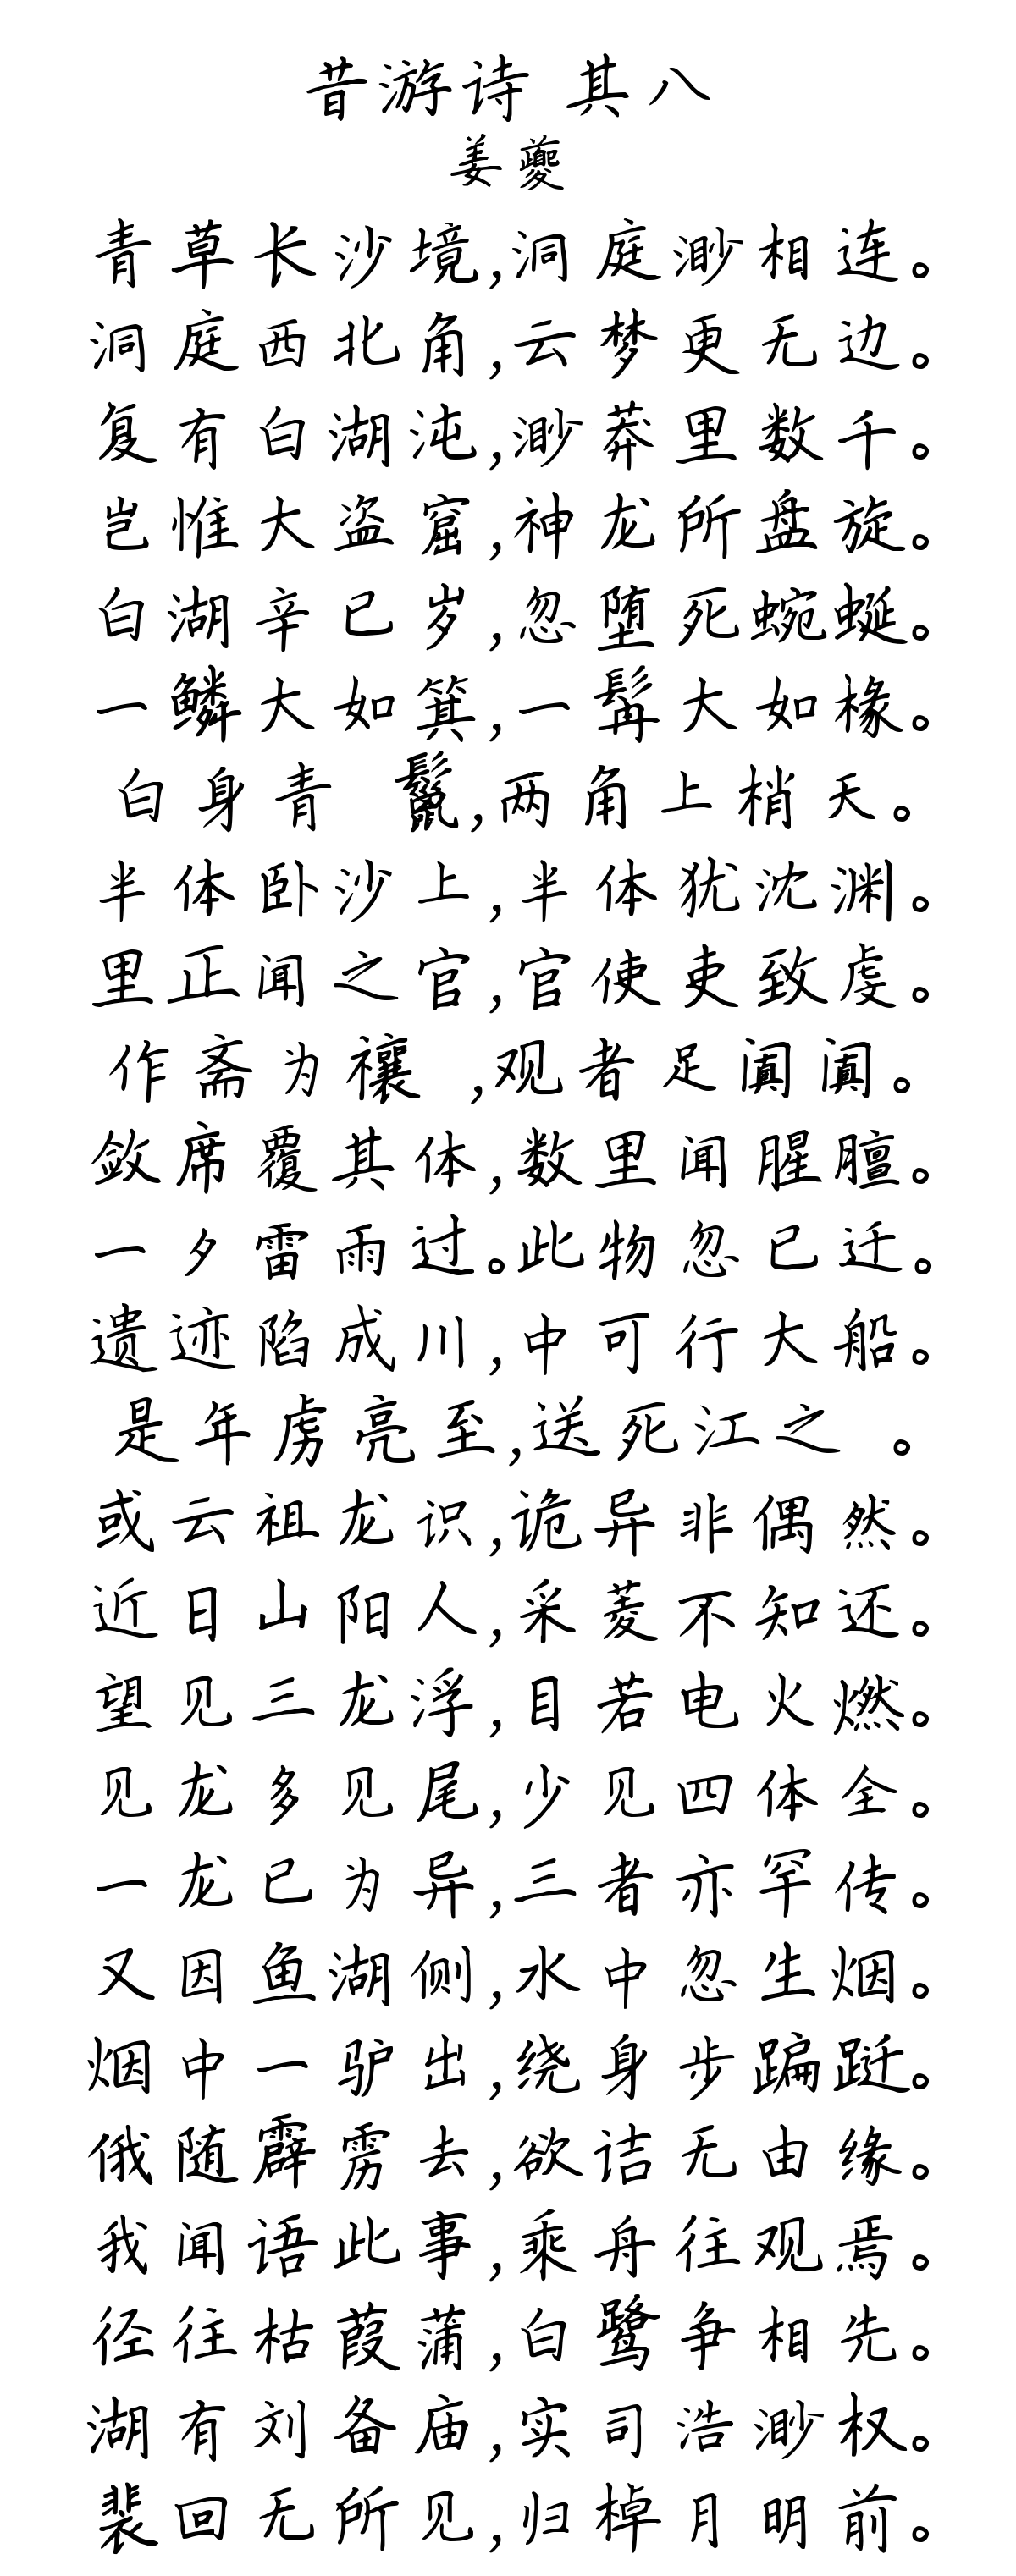 昔游诗 其八
姜夔
青草长沙境,洞庭渺相连。
洞庭西北角,云梦更无边。
复有白湖沌,渺莽里数千。
岂惟大盗窟,神龙所盘旋。
白湖辛已岁,忽堕死蜿蜒。
一鳞大如箕,一髯大如椽。
白身青 鬣,两角上梢天。
半体卧沙上,半体犹沈渊。
里正闻之官,官使吏致虔。
作斋为禳 ,观者足阗阗。
敛席覆其体,数里闻腥膻。
一夕雷雨过。此物忽已迁。
遗迹陷成川,中可行大船。
是年虏亮至,送死江之 。
或云祖龙识,诡异非偶然。
近日山阳人,采菱不知还。
望见三龙浮,目若电火燃。
见龙多见尾,少见四体全。
一龙已为异,三者亦罕传。
又因鱼湖侧,水中忽生烟。
烟中一驴出,绕身步蹁跹。
俄随霹雳去,欲诘无由缘。
我闻语此事,乘舟往观焉。
径往枯葭蒲,白鹭争相先。
湖有刘备庙,实司浩渺权。
裴回无所见,归棹月明前。